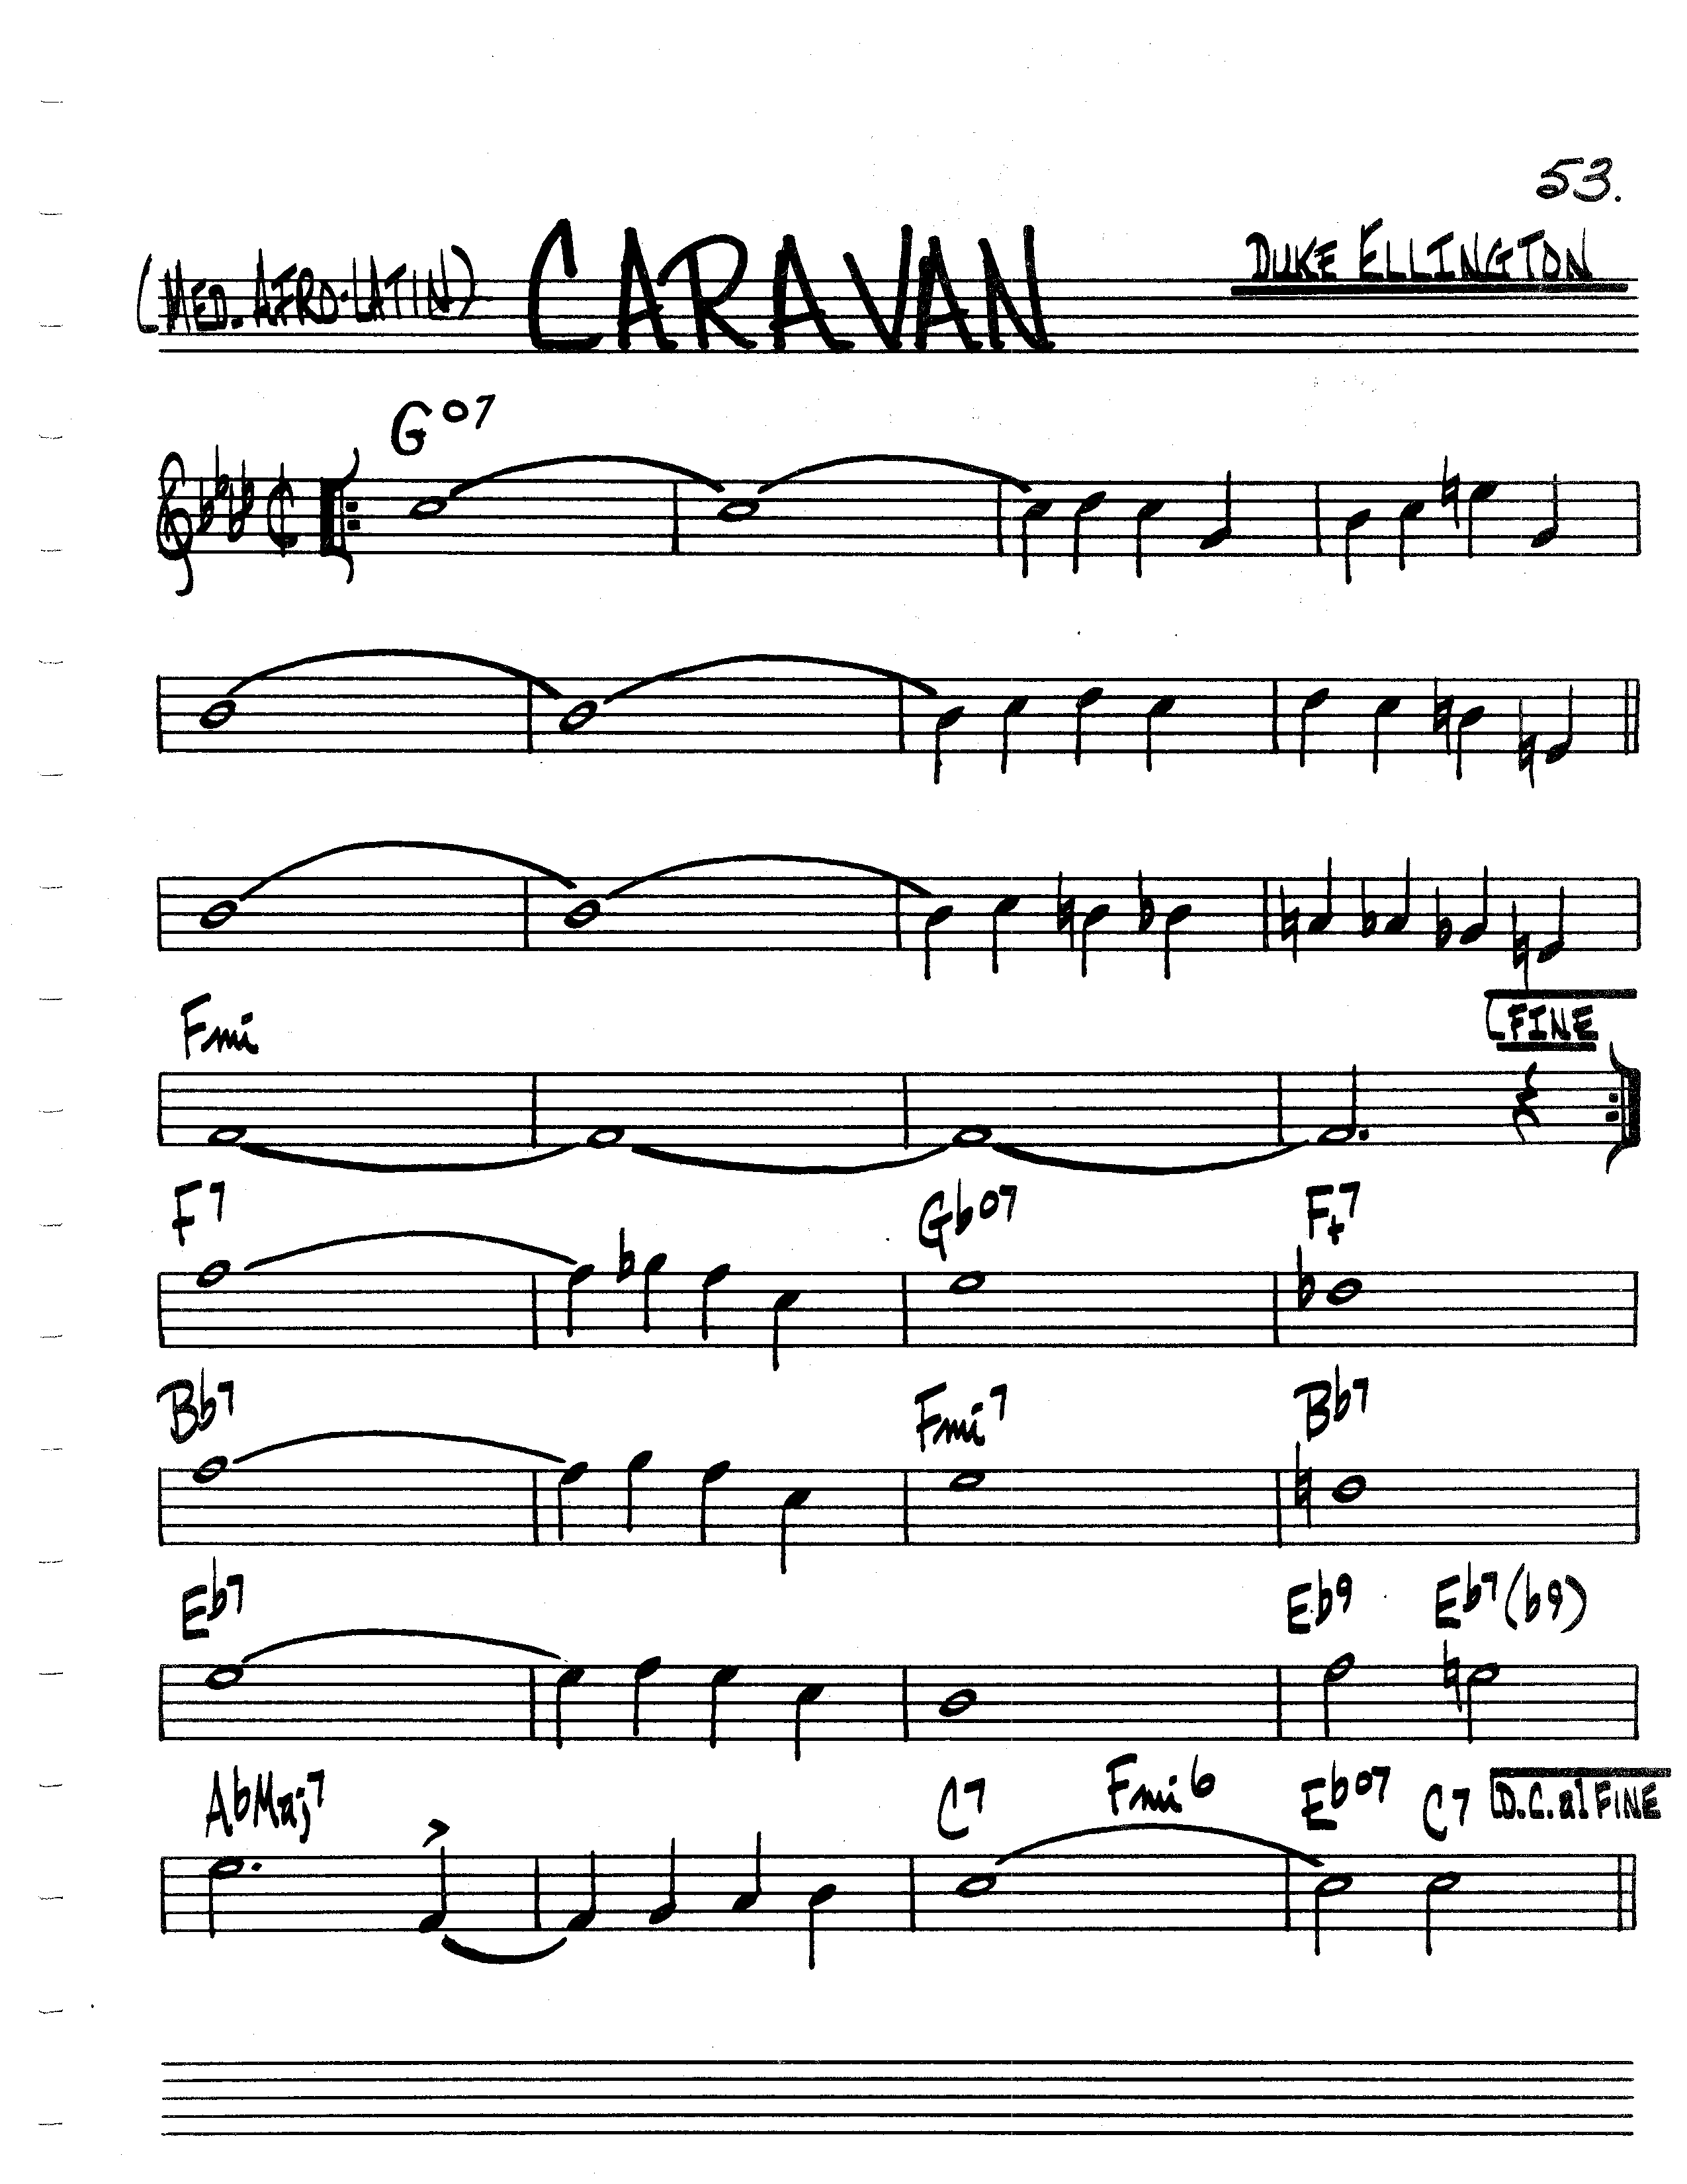 53.
(MED. AFRO-LATIN) CARAVAN DUKE ELLINGTON
G°7
Fmi FINE
F7 Gb°7 F+7
Bb7 Fmi7 Bb7
Eb7 Eb9 Eb7(b9)
AbMaj7 C7 Fmi6 Eb°7 C7 D.C. al FINE